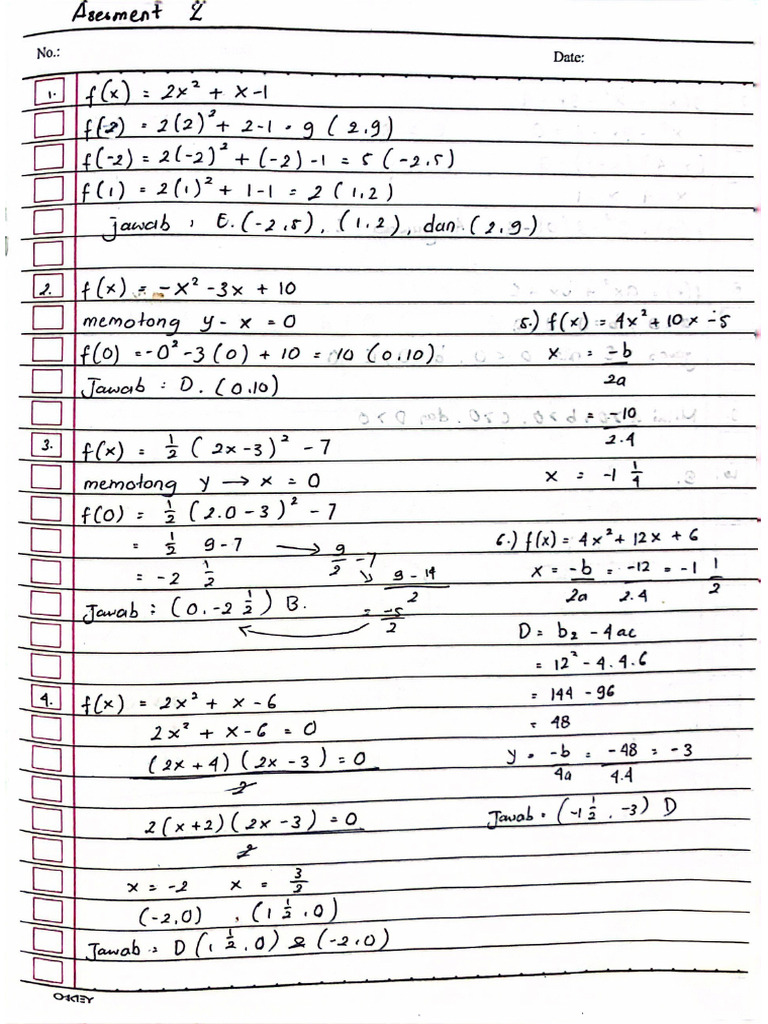 Asesment 2
No.:
Date:
1. f(x) = 2x² + x-1
f(2) = 2(2)² + 2-1 = 9 (2,9)
f(-2) = 2(-2)² + (-2) -1 = 5 (-2,5)
f(1) = 2(1)² + 1-1 = 2 (1,2)
jawab : E. (-2,5), (1,2), dan (2,9)
2. f(x) = -x² -3x + 10
memotong y - x = 0
f(0) = -0² -3(0) + 10 = 10 (0,10)
Jawab : D. (0,10)
3. f(x) = 1/2 (2x-3)² - 7
memotong y → x = 0
f(0) = 1/2 (2.0-3)² - 7
= 1/2 9-7 → 9/2 -7
= -2 1/2 9-14/2
Jawab : (0,-2 1/2) B. = -5/2
4. f(x) = 2x² + x - 6
2x² + x - 6 = 0
(2x+4)(2x-3) = 0
2
2(x+2)(2x-3) = 0
2
x = -2 x = 3/2
(-2,0) , (1 1/2,0)
Jawab : D (1 1/2,0) & (-2,0)
5.) f(x) = 4x² + 10x -5
x = -b/2a
= -10/2.4
x = -1 1/4
6.) f(x) = 4x² + 12x + 6
x = -b/2a = -12/2.4 = -1 1/2
D = b2 - 4ac
= 12² - 4.4.6
= 144 - 96
= 48
y = -b/4a = -48/4.4 = -3
Jawab = (-1 1/2, -3) D